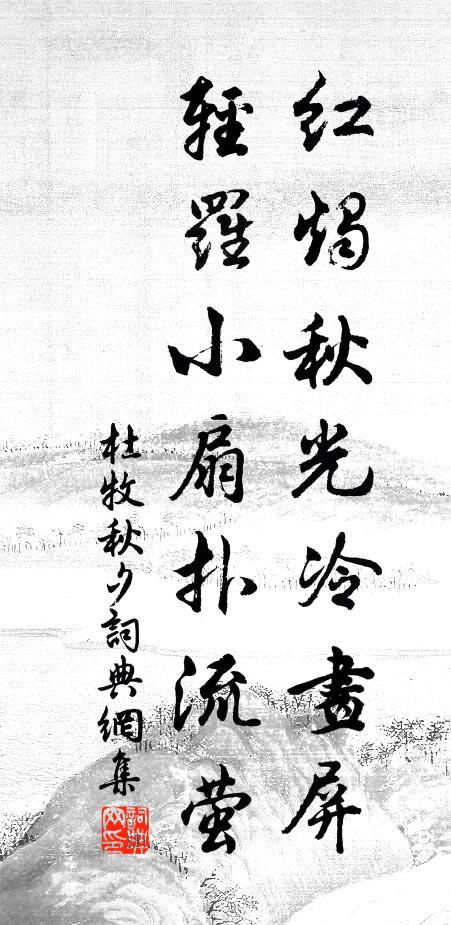 红烛秋光冷畫屏
輕羅小扇扑流萤
杜牧秋夕詞典網集
詞典網印